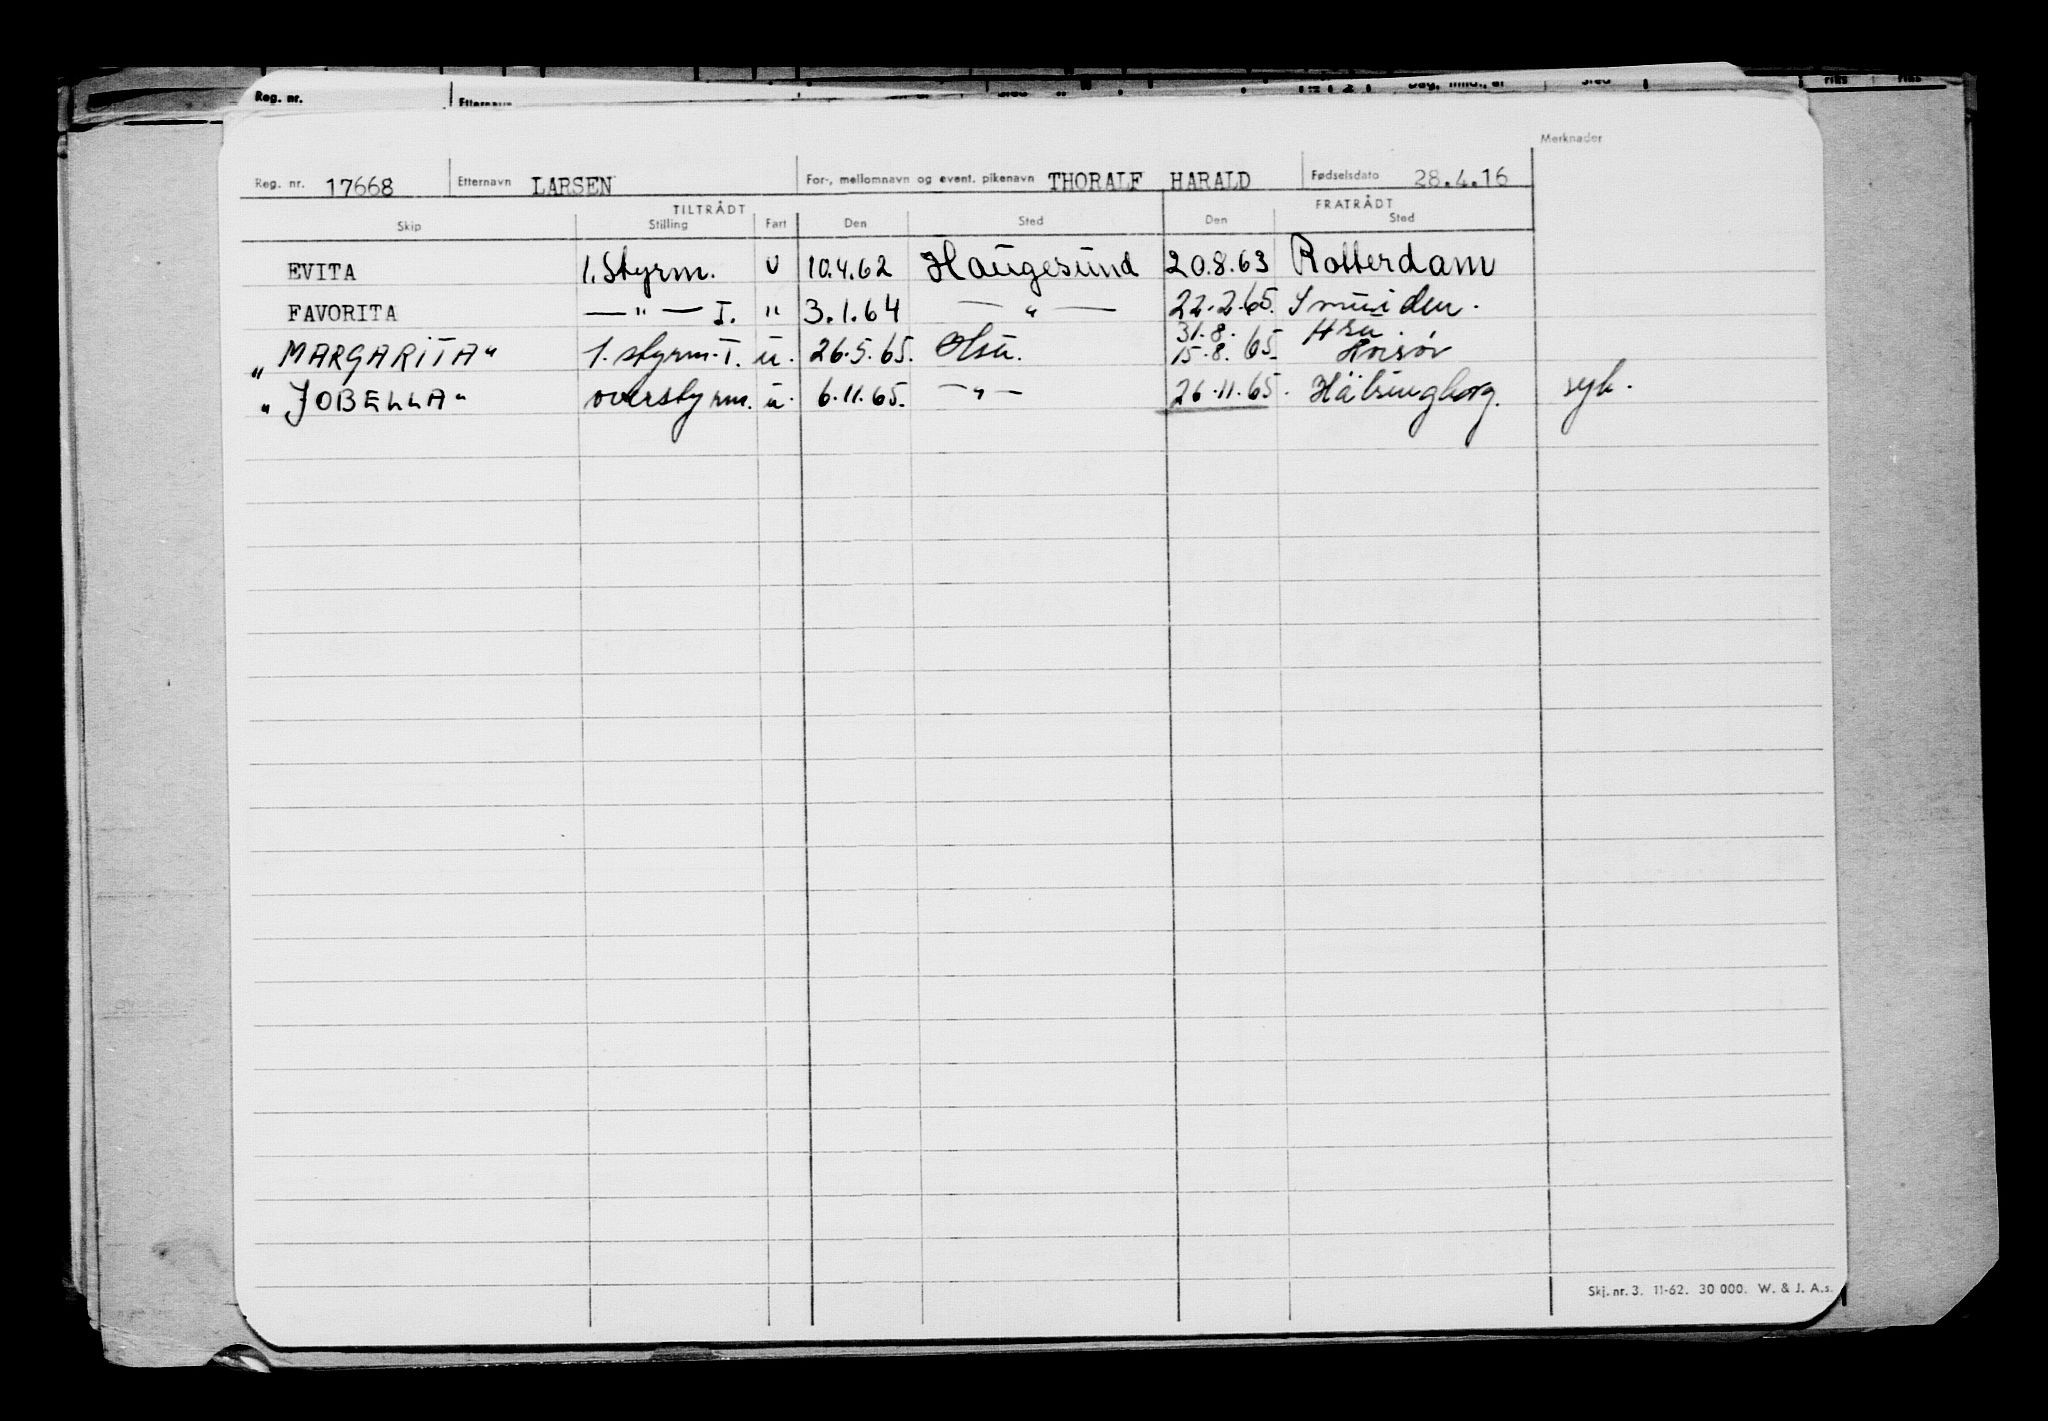 Reg. nr.
Etternavn
Merknader
Reg. nr. 17668 Etternavn LARSEN For-, mellomnavn og event. pikenavn THORALF HARALD Fødselsdato 28.4.16
TILTRÅDT FRATRÅDT
Skip Stilling Fart Den Sted Den Sted
EVITA 1. Styrm. U 10.4.62 Haugesund 20.8.63 Rotterdam
FAVORITA — " — I. " 3.1.64 — " — 22.2.65.
31.8.
"MARGARITA" 1. styrm. I. u. 26.5.65. 15.8.65.
"JOBELLA" overstyrm. u. 6.11.65. — " — 26.11.65. Hälsingborg. syk.
Skj. nr. 3. 11-62. 30 000. W. & J. A.s.